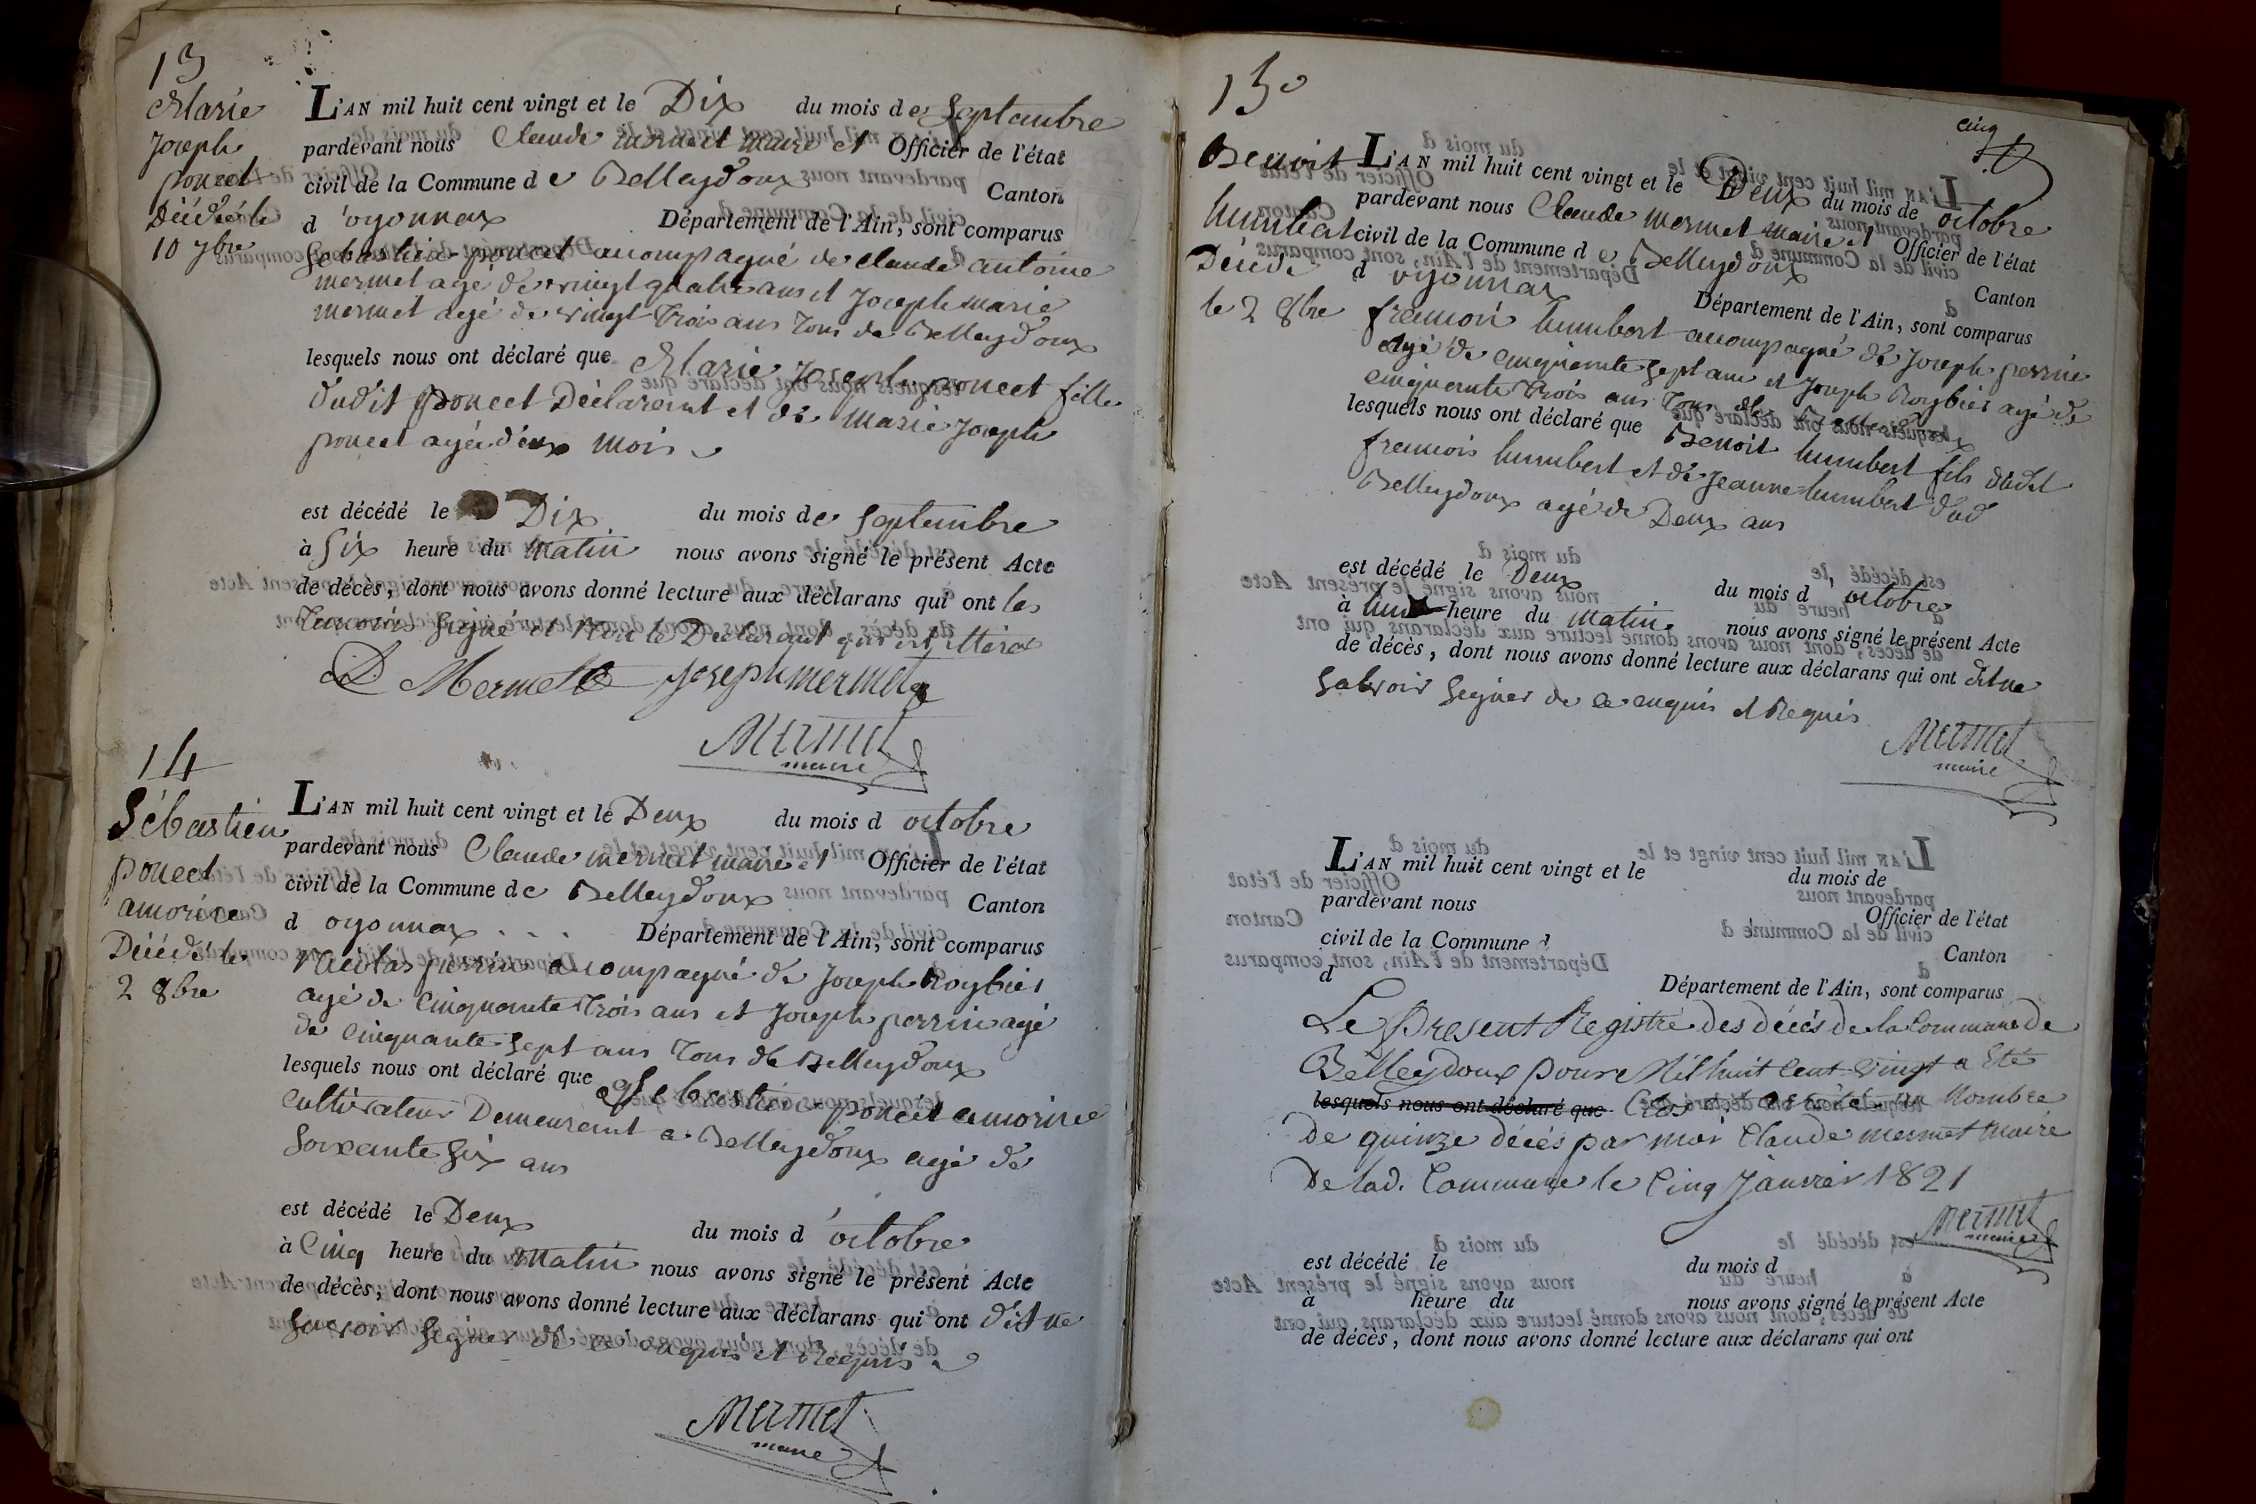 13
Marie
Joseph
poncet
Décédé le
10 7bre
L'AN mil huit cent vingt et le Dix du mois de Septembre
pardevant nous Claude mermet maire et Officier de l'état
civil de la Commune de Belleydoux Canton
d'oyonnax Département de l'Ain, sont comparus
Sebastien poncet acompagné de claude antoine
mermet agé de vingt quatre ans et Joseph marie
mermet agé de vingt trois ans tous de Belleydoux
lesquels nous ont déclaré que Marie Joseph poncet fille
dudit poncet Déclarant et de marie Joseph
poncet agée deux mois
est décédé le Dix du mois de Septembre
à Six heure du matin nous avons signé le présent Acte
de décès, dont nous avons donné lecture aux déclarans qui ont les
temoins signé et non le Declarant qui est
Mermet Joseph mermet
Mermet
maire
14
Sébastien
poncet
amorine
Décédé le
2 8bre
L'AN mil huit cent vingt et le Deux du mois d octobre
pardevant nous Claude mermet maire et Officier de l'état
civil de la Commune de Belleydoux Canton
d oyonnax Département de l'Ain, sont comparus
Nicolas perrin acompagné de Joseph Roybier
agé de Cinquante trois ans et Joseph perrin agé
de cinquante Sept ans tous de Belleydoux
lesquels nous ont déclaré que Sebastien poncet amorine
cultivateur Demeurant a Belleydoux agé de
Soixante Six ans
est décédé le Deux du mois d'octobre
à Cinq heure du Matin nous avons signé le présent Acte
de décès, dont nous avons donné lecture aux déclarans qui ont dit ne
savoir signer de ce enquis et Requis
Mermet
maire
15
cinq
Benoit
humbert
Décédé
le 2 8bre
L'AN mil huit cent vingt et le Deux du mois de octobre
pardevant nous Claude mermet maire et Officier de l'état
civil de la Commune de Belleydoux Canton
d oyonnax Département de l'Ain, sont comparus
francois humbert acompagné de Joseph perrin
agé de cinquante Sept ans et Joseph Roybier agé de
cinquante trois ans tous de Belleydoux
lesquels nous ont déclaré que Benoit humbert fils dudit
francois humbert et de Jeanne humbert dud
Belleydoux agé de Deux ans
est décédé le Deux du mois d'octobre
à heure du Matin nous avons signé le présent Acte
de décès, dont nous avons donné lecture aux déclarans qui ont dit ne
savoir signer de ce enquis et Requis
Mermet
maire
L'AN mil huit cent vingt et le du mois de
pardevant nous Officier de l'état
civil de la Commune d Canton
d Département de l'Ain, sont comparus
Le Present Registre des décès de la Commune de
Belleydoux pour Mil huit Cent vingt a été
lesquels nous ont déclaré que Clos et arreté au Nombre
De quinze décès par moi Claude mermet Maire
De lad. Commune le Cinq Janvier 1821
Mermet
maire
est décédé le du mois d
à heure du nous avons signé le présent Acte
de décès, dont nous avons donné lecture aux déclarans qui ont